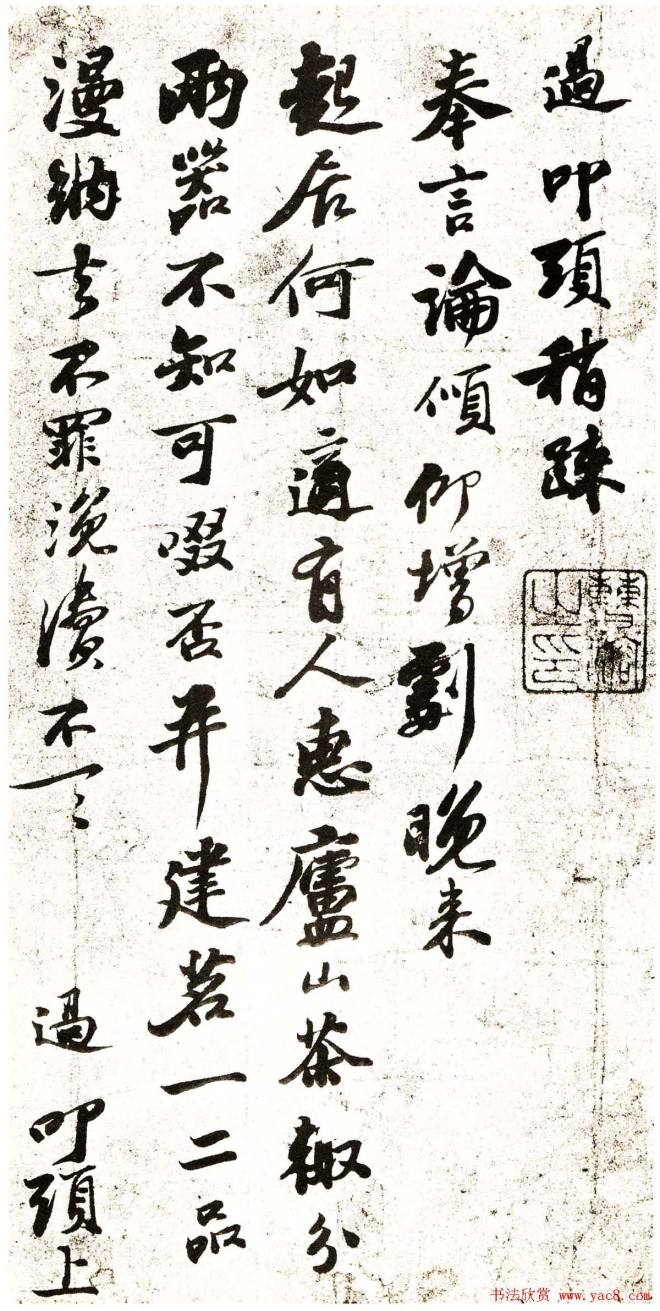 過叩頭稍踈
奉言論傾仰增劇晚来
起居何如適有人惠廬山茶輙分
兩器不知可啜否并建茗一二品
漫納去不罪浼瀆不一〻
過 叩頭上
書法欣赏 www.yac8.com